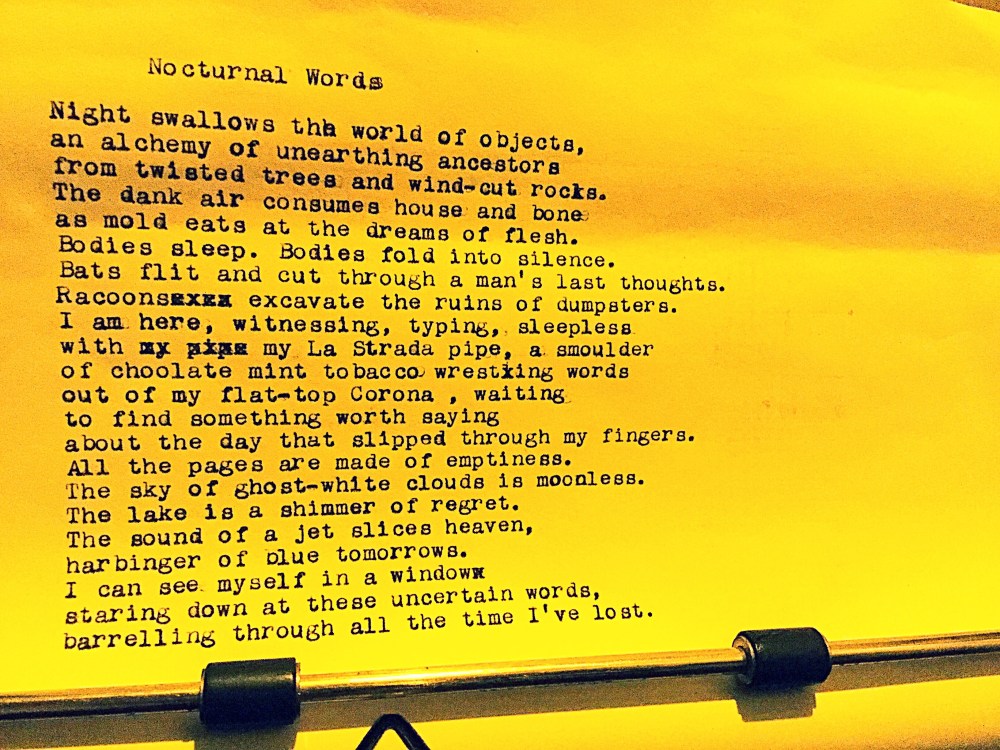 Nocturnal Words
Night swallows the world of objects,
an alchemy of unearthing ancestors
from twisted trees and wind-cut rocks.
The dank air consumes house and bone
as mold eats at the dreams of flesh.
Bodies sleep. Bodies fold into silence.
Bats flit and cut through a man's last thoughts.
Racoonsxxxx excavate the ruins of dumpsters.
I am here, witnessing, typing, sleepless
with my pipe my La Strada pipe, a smoulder
of choolate mint tobacco wrestking words
out of my flat-top Corona , waiting
to find something worth saying
about the day that slipped through my fingers.
All the pages are made of emptiness.
The sky of ghost-white clouds is moonless.
The lake is a shimmer of regret.
The sound of a jet slices heaven,
harbinger of blue tomorrows.
I can see myself in a windowx
staring down at these uncertain words,
barrelling through all the time I've lost.